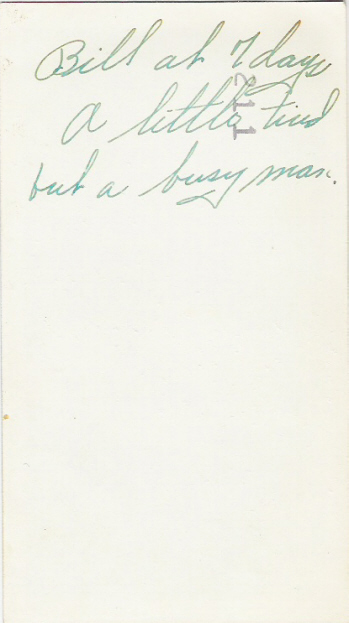 Bill at 7 days
A little tired
but a busy man.
211